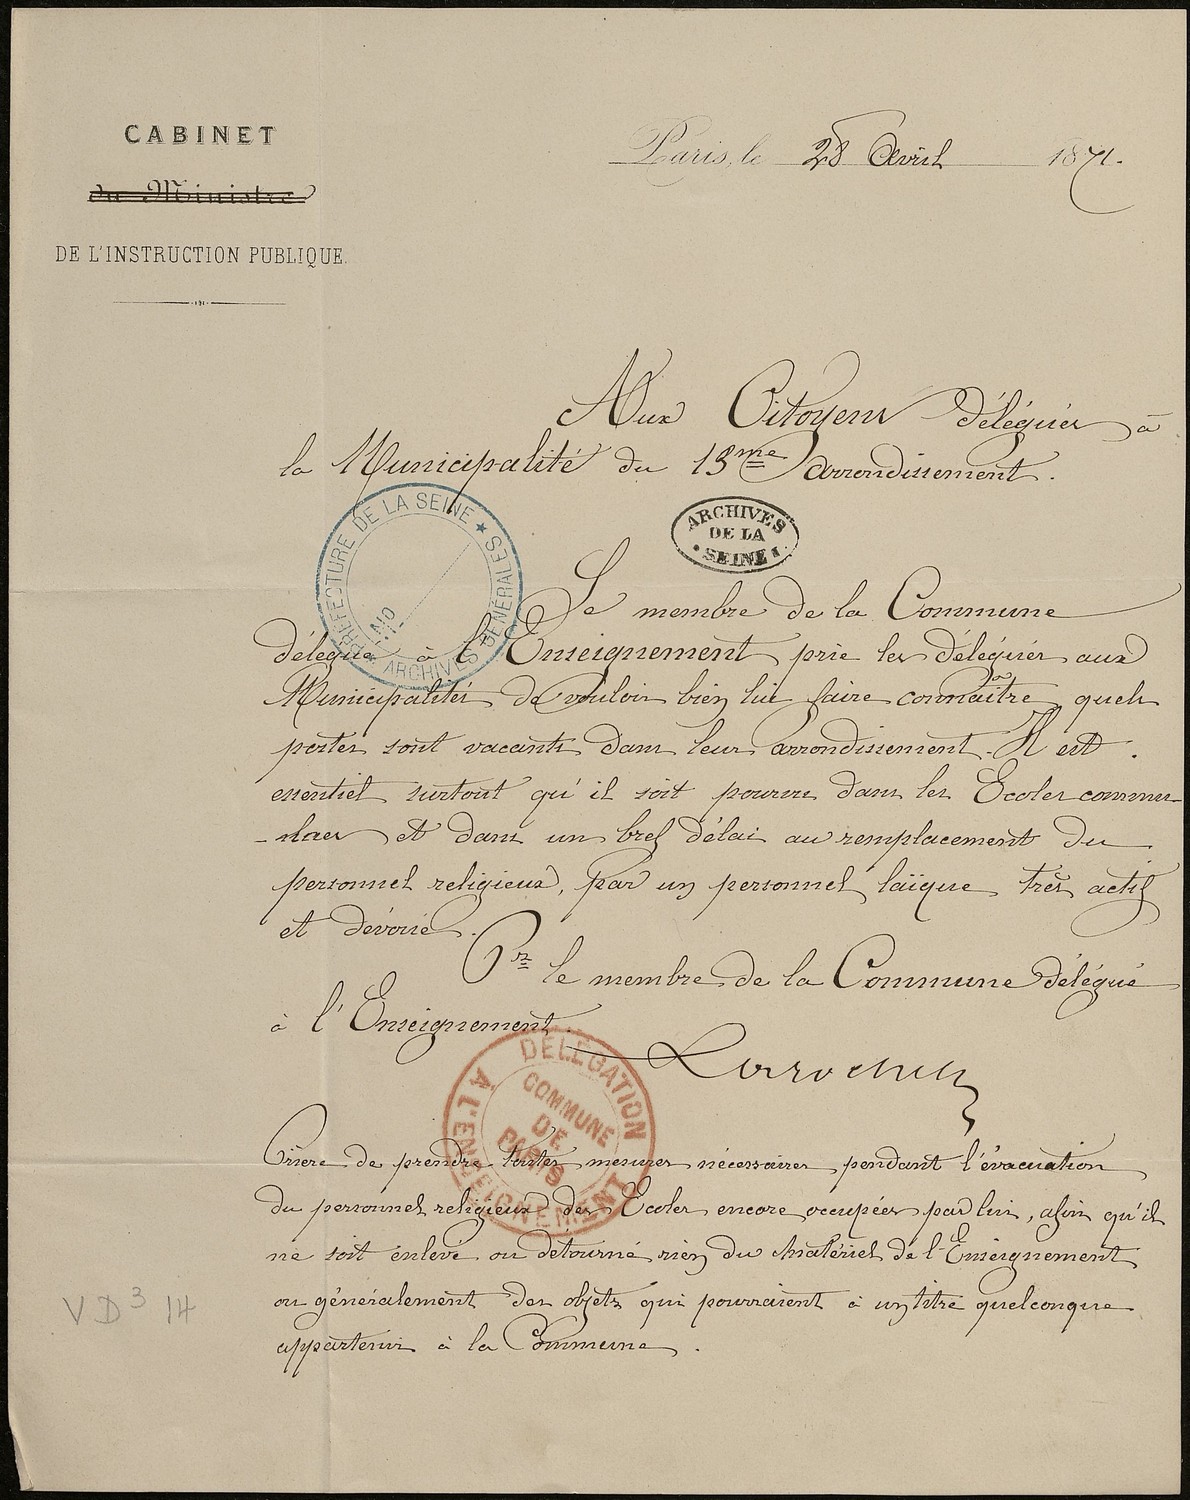 CABINET
du Ministre
DE L'INSTRUCTION PUBLIQUE.
Paris, le 28 Avril 1871.
Aux Citoyens délégués à
la Municipalité du 13me arrondissement.
PRÉFECTURE DE LA SEINE ★ ARCHIVES GÉNÉRALES
No
ARCHIVES
DE LA
SEINE 1.
Le membre de la Commune
délégué à l'Enseignement prie les délégués aux
Municipalités de vouloir bien lui faire connaître quels
postes sont vacants dans leur arrondissement. Il est
essentiel surtout qu'il soit pourvu dans les Ecoles commu-
-nales et dans un bref délai au remplacement du
personnel religieux, par un personnel laïque très actif
et dévoué.
Pr le membre de la Commune délégué
à l'Enseignement.
DÉLÉGATION A L'ENSEIGNEMENT
COMMUNE
DE
PARIS
Prière de prendre toutes mesures nécessaires pendant l'évacuation
du personnel religieux des Ecoles encore occupées par lui, afin qu'il
ne soit enlevé ou détourné rien du matériel de l'Enseignement
ou généralement des objets qui pourraient à un titre quelconque
appartenir à la Commune.
VD3 14